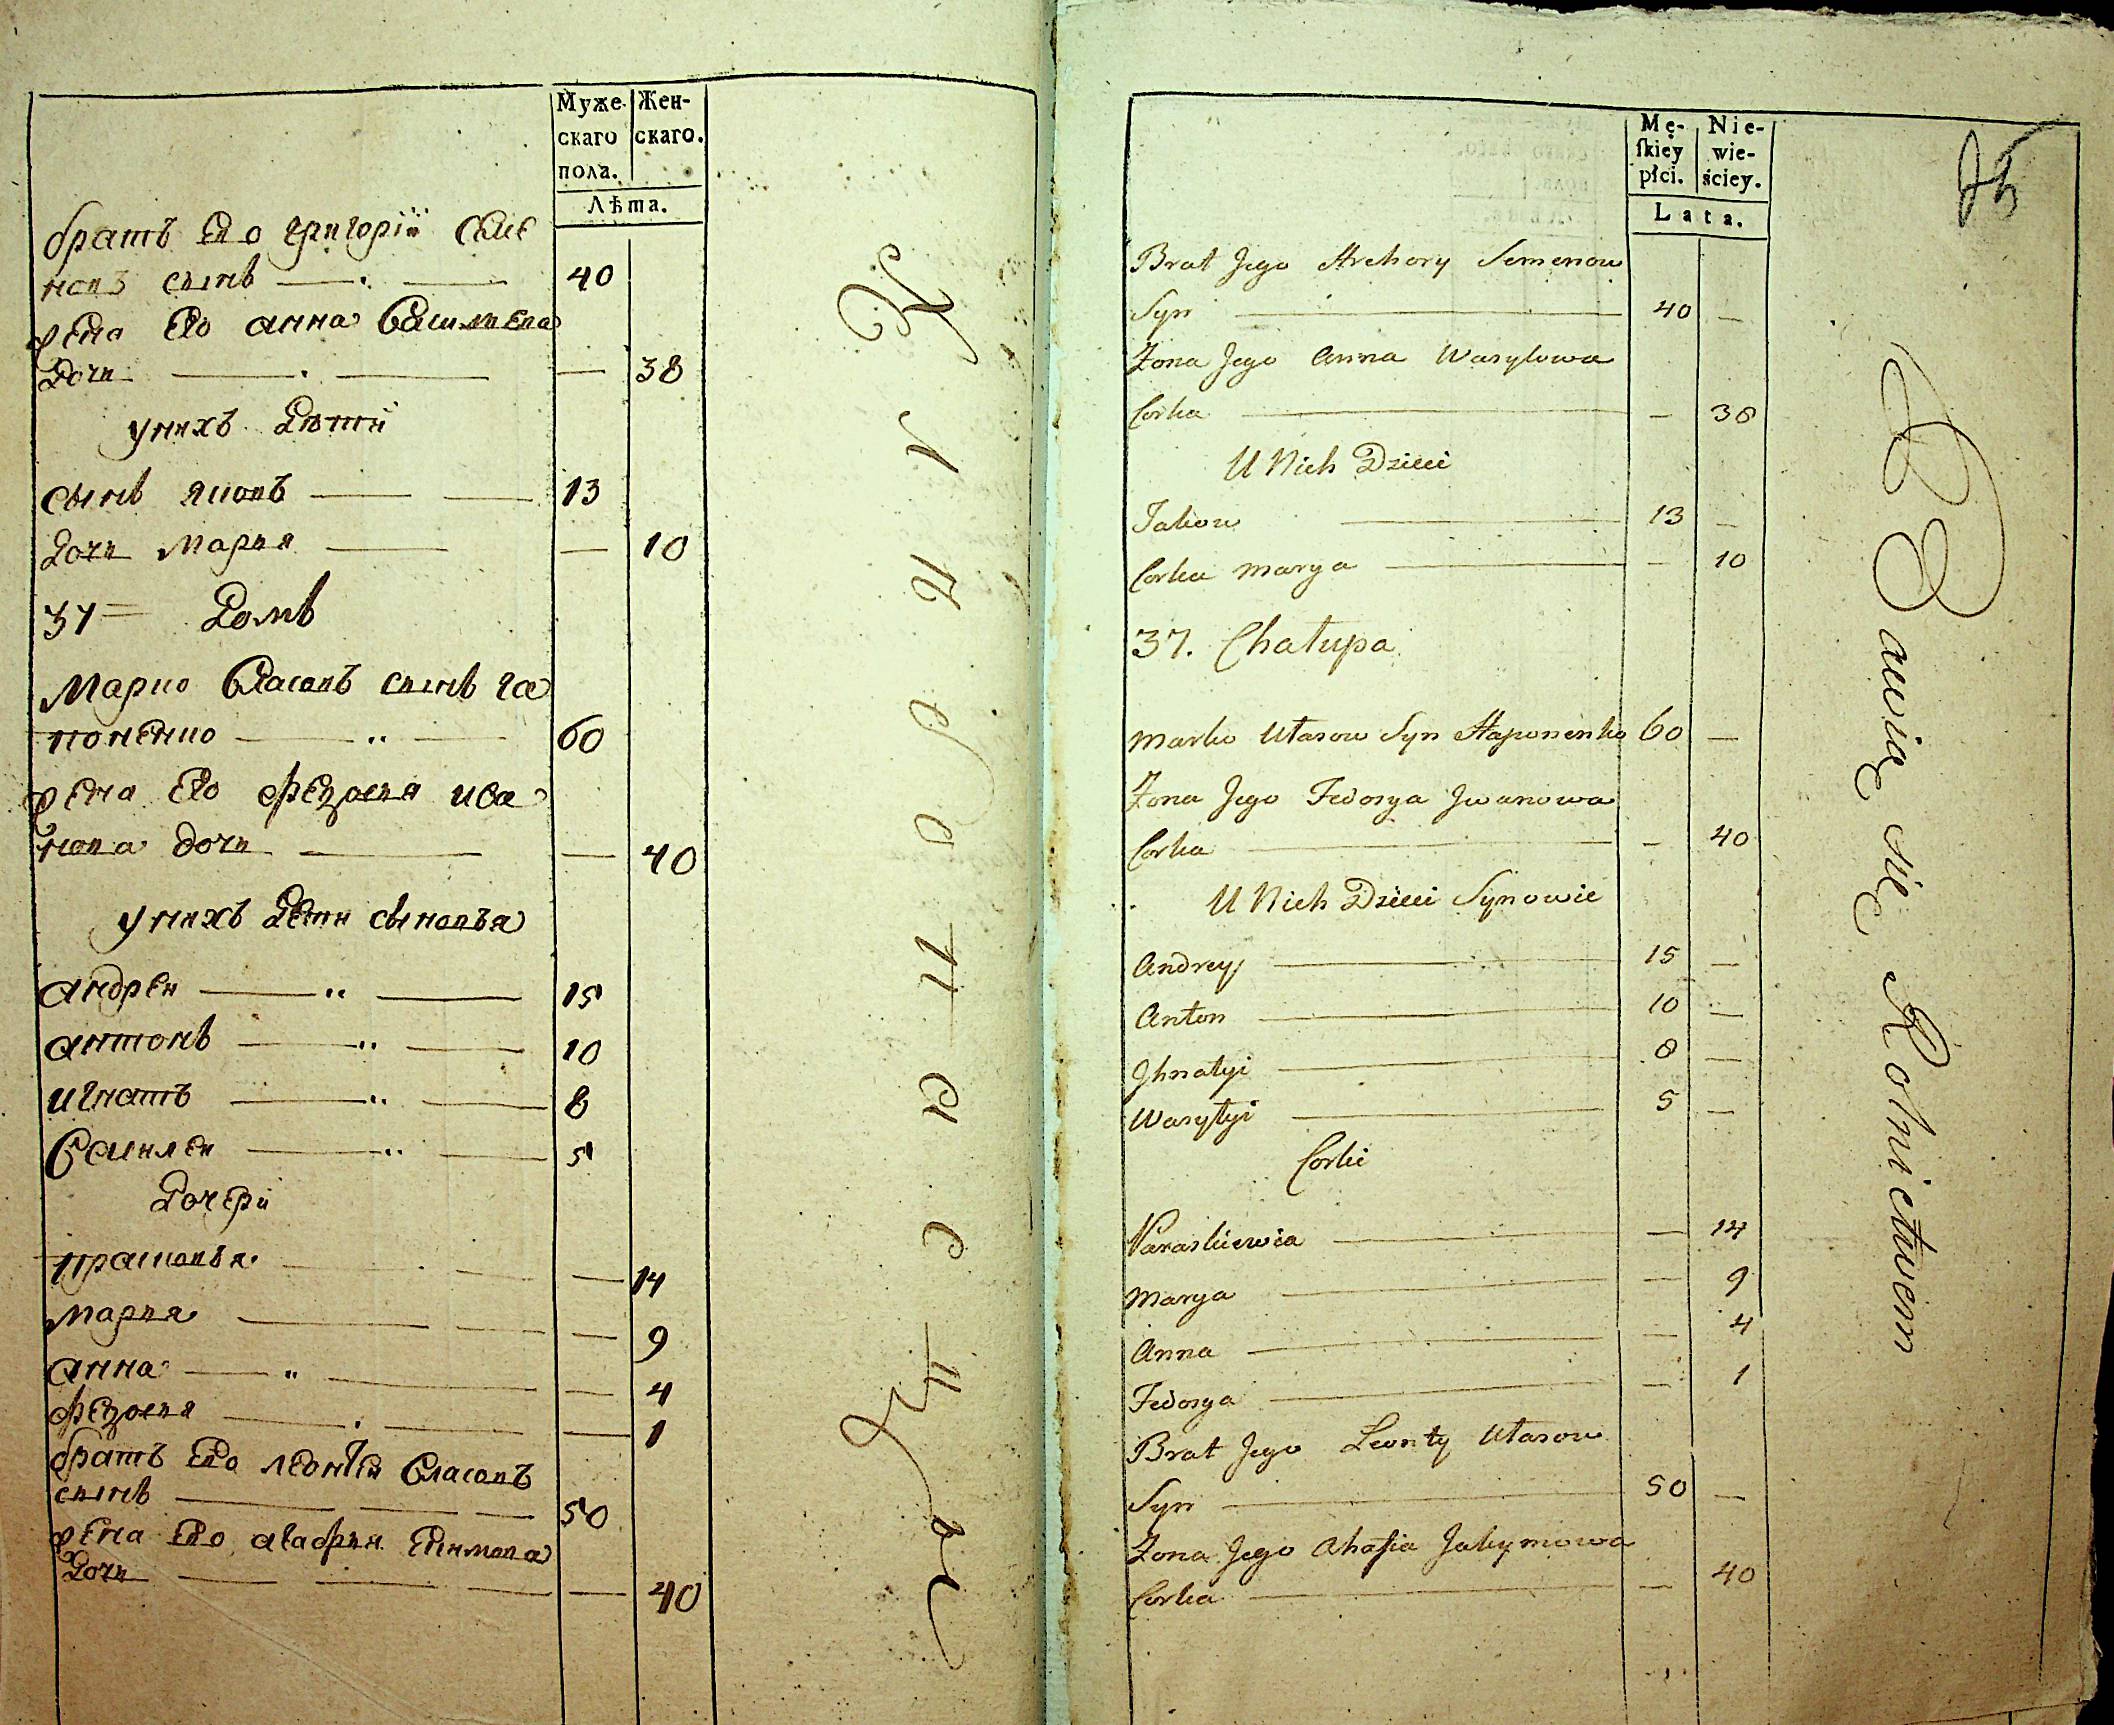 Муже-
скаго
пола.
Жен-
скаго.
Лѣта.
братъ его григорій Семе
новъ сынъ 40
жена его анна Василиева
Дочи 38
у нихъ Дѣти
сынъ яковъ 13
Дочи Мария 10
37 Домъ
Марко Власовъ сынъ га
поненко 60
жена его Федосия ива
нова дочи 40
у нихъ Дети сыновъя
андреи 15
антонъ 10
игнатъ 8
Василеи 5
Дочери
прасковъя 14
Мария 9
анна 4
Федосия 1
братъ его леонтеи Власовъ
сынъ 50
жена его агафия
Дочи 40
Mę-
ſkiey
płci.
Nie-
wie-
ściey.
Lata.
Brat Jego Hrehory Semenow
Syn 40
Zona Jego Anna Wasylowa
Corka 38
U Nich Dzieci
Jakow 13
Corka Marya 10
37. Chałupa
Marko Ułasow Syn Haponenko 60
Zona Jego Fedosya Jwanowa
Corka 40
U Nich Dzieci Synowie
Andrey 15
Anton 10
Jhnatyi 8
Wasylyi 5
Corki
Paraskiewia 14
Marya 9
Anna 4
Fedosya 1
Brat Jego Leonty Ułasow
Syn 50
Zona Jego Ahafia Jakymowa
Corka 40
Bawią się Rolnictwem